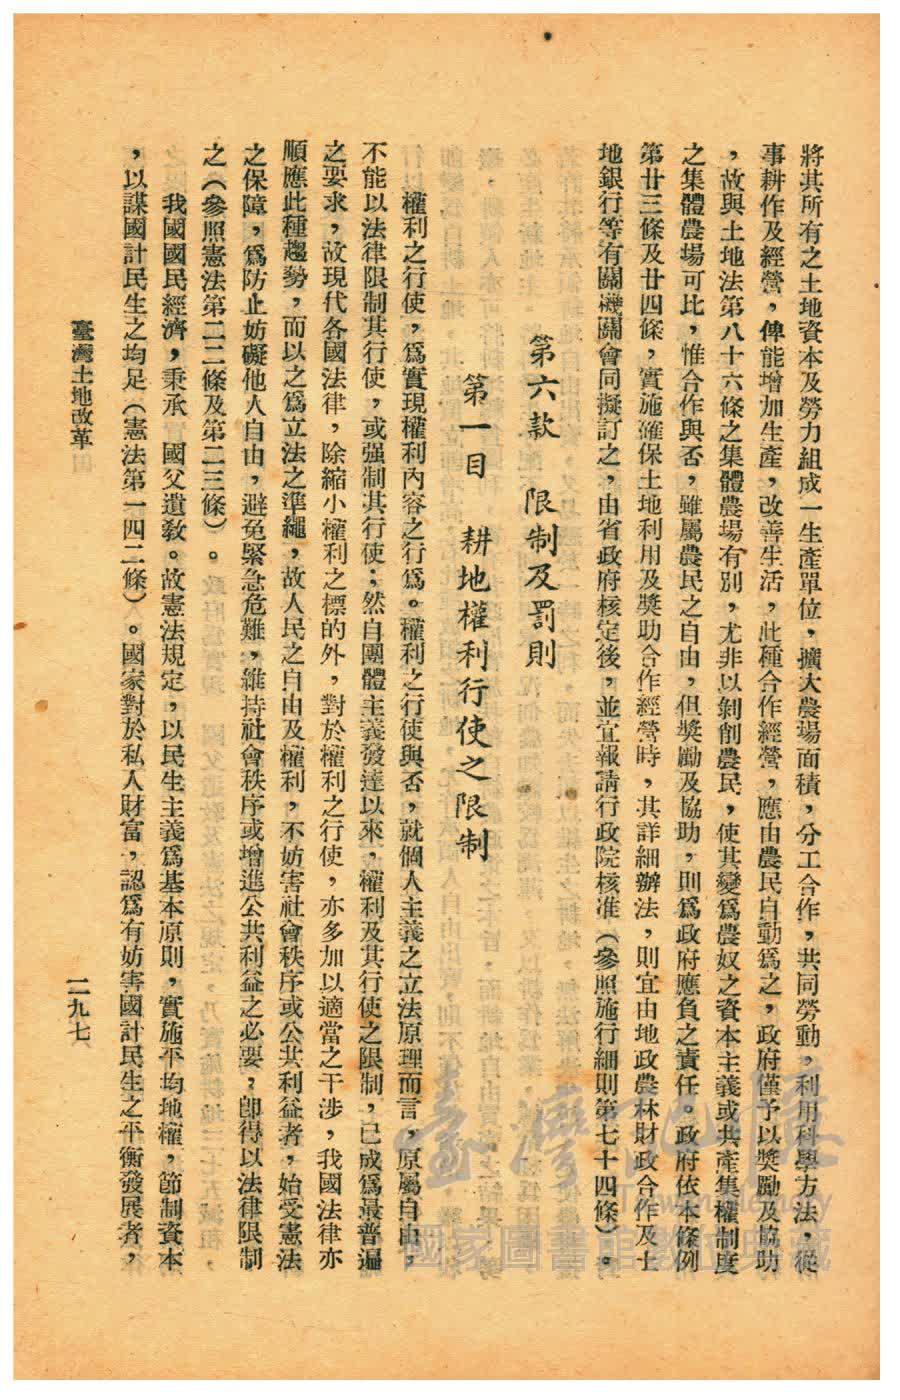 將其所有之土地資本及勞力組成一生產單位，擴大農場面積，分工合作，共同勞動，利用科學方法，從
事耕作及經營，俾能增加生產，改善生活，此種合作經營，應由農民自動爲之，政府僅予以獎勵及協助
，故與土地法第八十六條之集體農場有別，尤非以剝削農民，使其變爲農奴之資本主義或共產集權制度
之集體農場可比，惟合作與否，雖屬農民之自由，但獎勵及協助，則爲政府應負之責任。政府依本條例
第廿三條及廿四條，實施確保土地利用及獎助合作經營時，其詳細辦法，則宜由地政農林財政合作及土
地銀行等有關機關會同擬訂之，由省政府核定後，並宜報請行政院核准（參照施行細則第七十四條）。
第六款　限制及罰則
第一目　耕地權利行使之限制
權利之行使，爲實現權利內容之行爲。權利之行使與否，就個人主義之立法原理而言，原屬自由，
不能以法律限制其行使，或强制其行使；然自團體主義發達以來，權利及其行使之限制，已成爲最普遍
之要求，故現代各國法律，除縮小權利之標的外，對於權利之行使，亦多加以適當之干涉，我國法律亦
順應此種趨勢，而以之爲立法之準繩，故人民之自由及權利，不妨害社會秩序或公共利益者，始受憲法
之保障，爲防止妨礙他人自由，避免緊急危難，維持社會秩序或增進公共利益之必要，卽得以法律限制
之（參照憲法第二二條及第二三條）。
我國國民經濟，秉承　國父遺敎。故憲法規定，以民生主義爲基本原則，實施平均地權，節制資本
，以謀國計民生之均足（憲法第一四二條）。國家對於私人財富，認爲有妨害國計民生之平衡發展者，
臺灣土地改革
二九七
臺灣記憶
Taiwan Memory
國家圖書館數位典藏